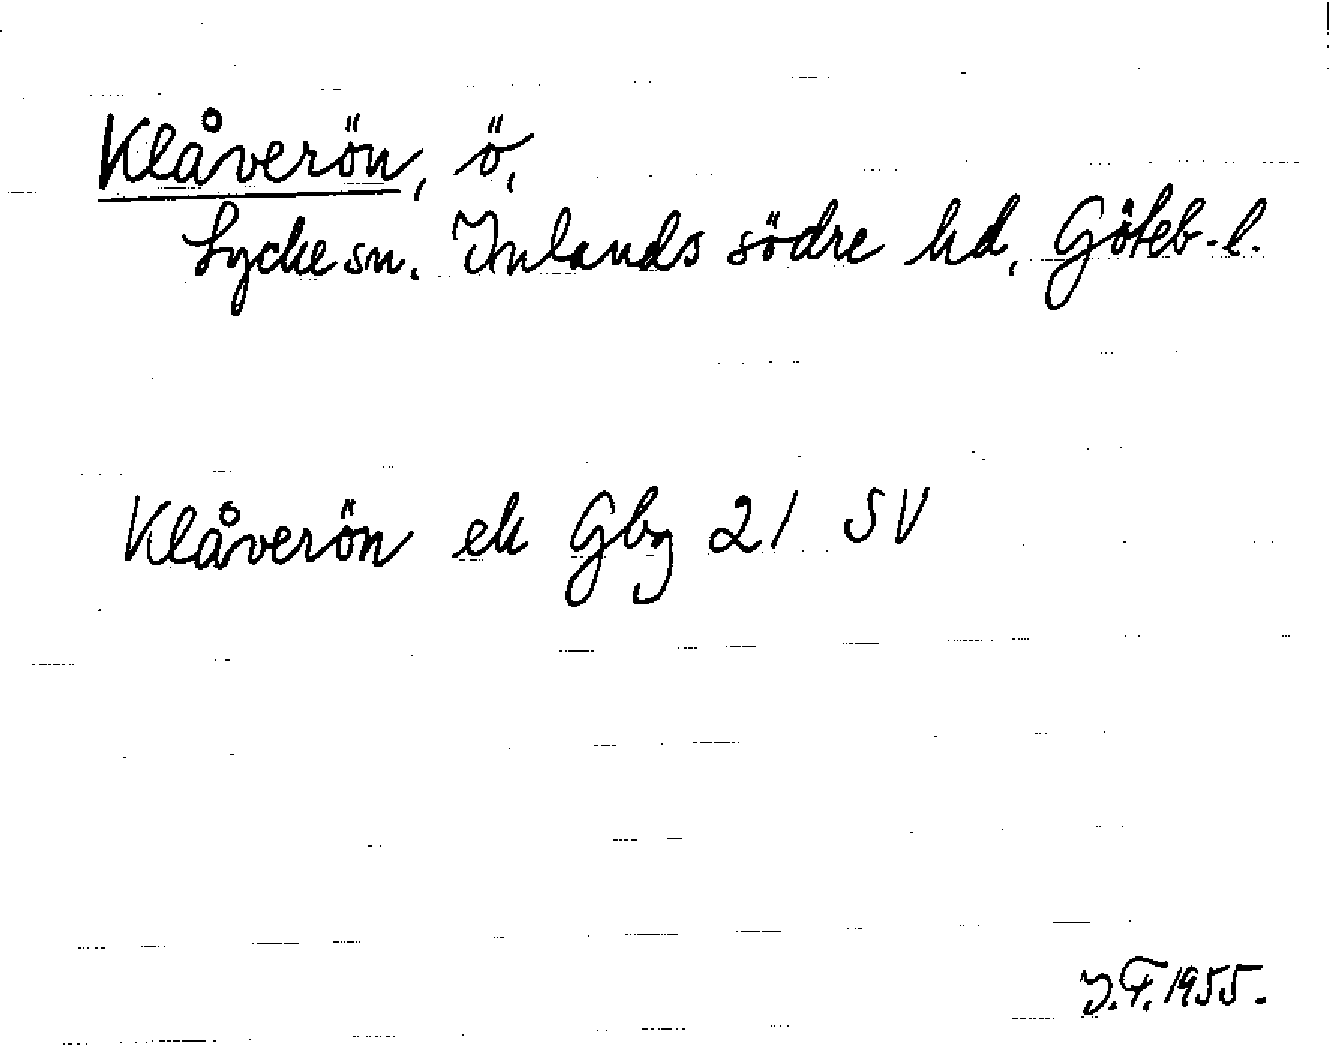 Klåverön, ö,
Lycke sn. Inlands södre hd, Göteb.-l.
Klåverön ek Gbg 21 SV
J.F. 1955.